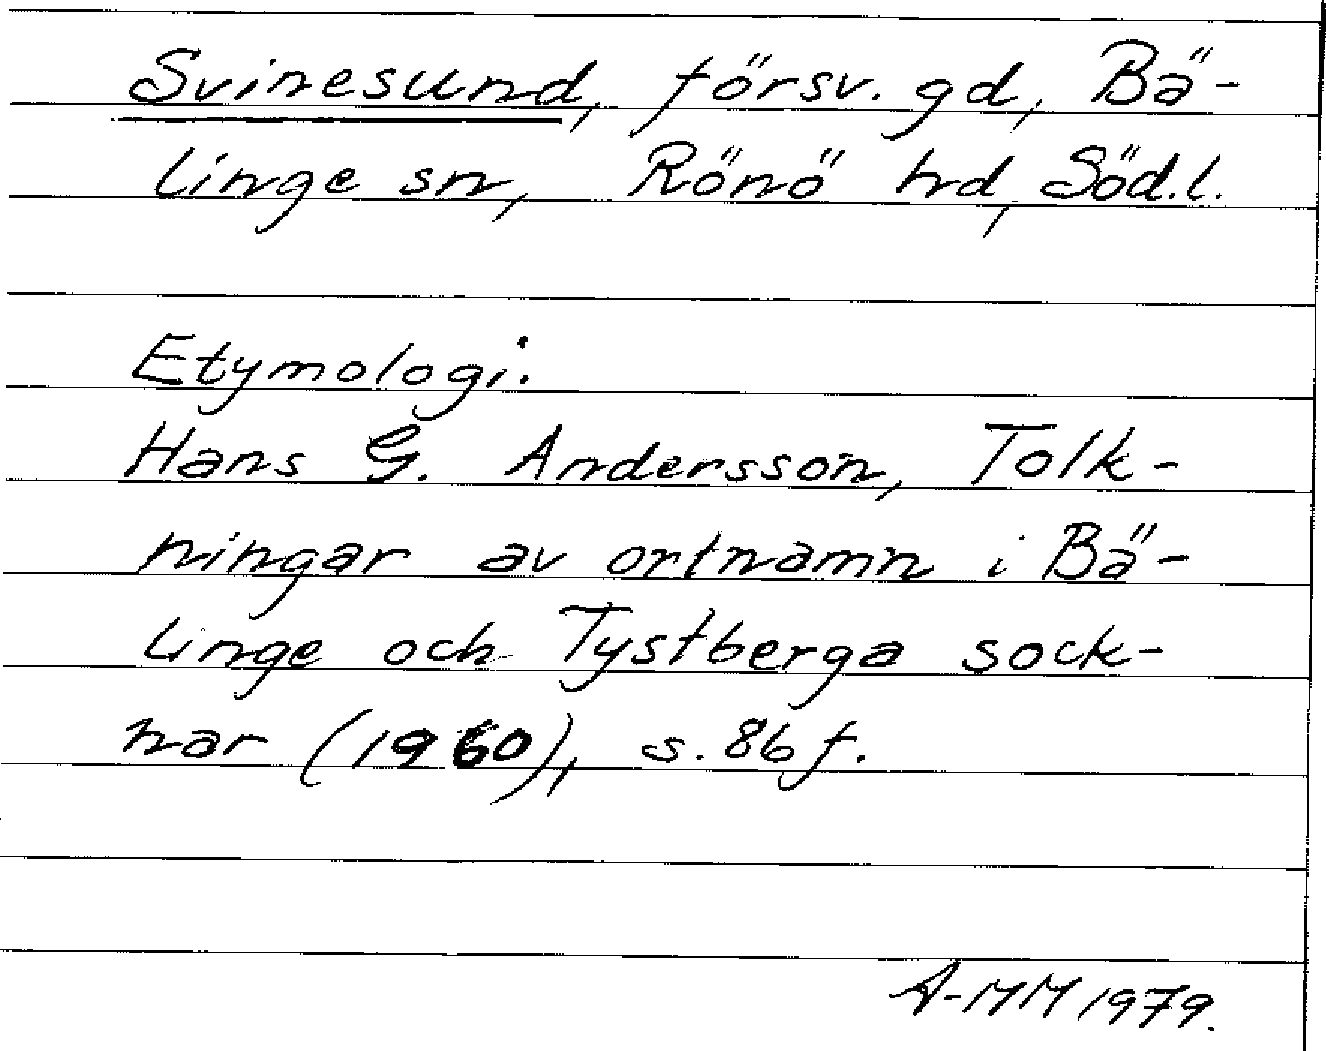 Svinesund, försv. gd, Bä-
linge sn, Rönö hd, Söd.l.
Etymologi:
Hans G. Andersson, Tolk-
ningar av ortnamn i Bä-
linge och Tystberga sock-
nar (1960), s. 86 f.
A-MM 1979.